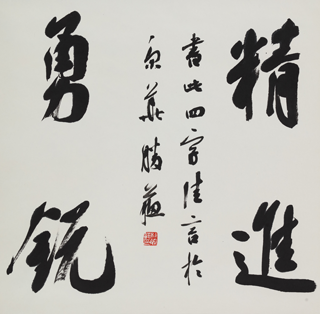 精進
書此四字佳言於
京華 勝蘇
勇銳